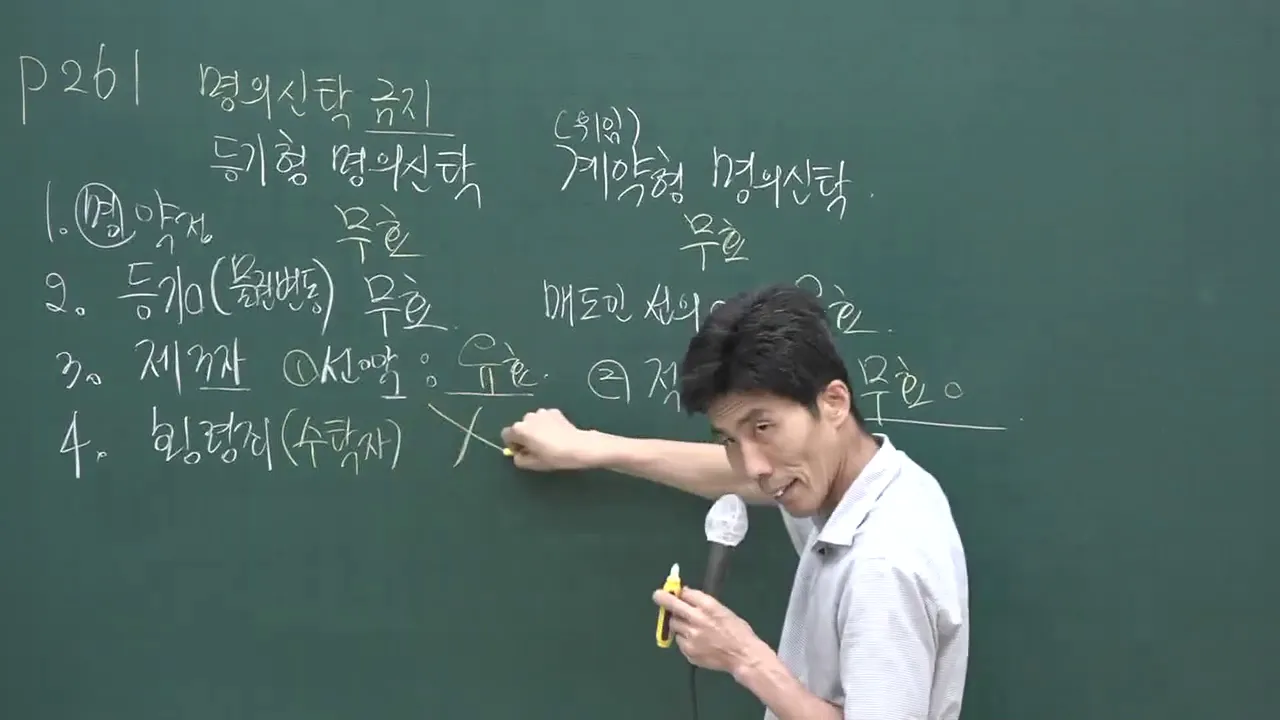 P261
명의신탁 금지
등기형 명의신탁
(위임)
계약형 명의신탁.
1. 명 약정 무효 무효
2. 등기(물권변동) 무효. 매도인 선의 유효.
3. 제3자 ①선악: 유효. ② 무효
4. 횡령죄(수탁자) X